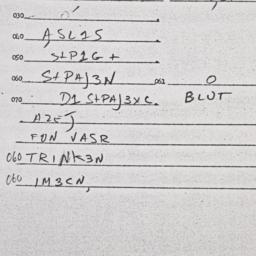 030
060 ASL1S
050 S+P1G+
060 S+PAJ3N 061 O
070 D1 S+PAJ3XC. BLUT
AZEJ
FDN VASR
060 TR1NK3N
060 1M3CN,